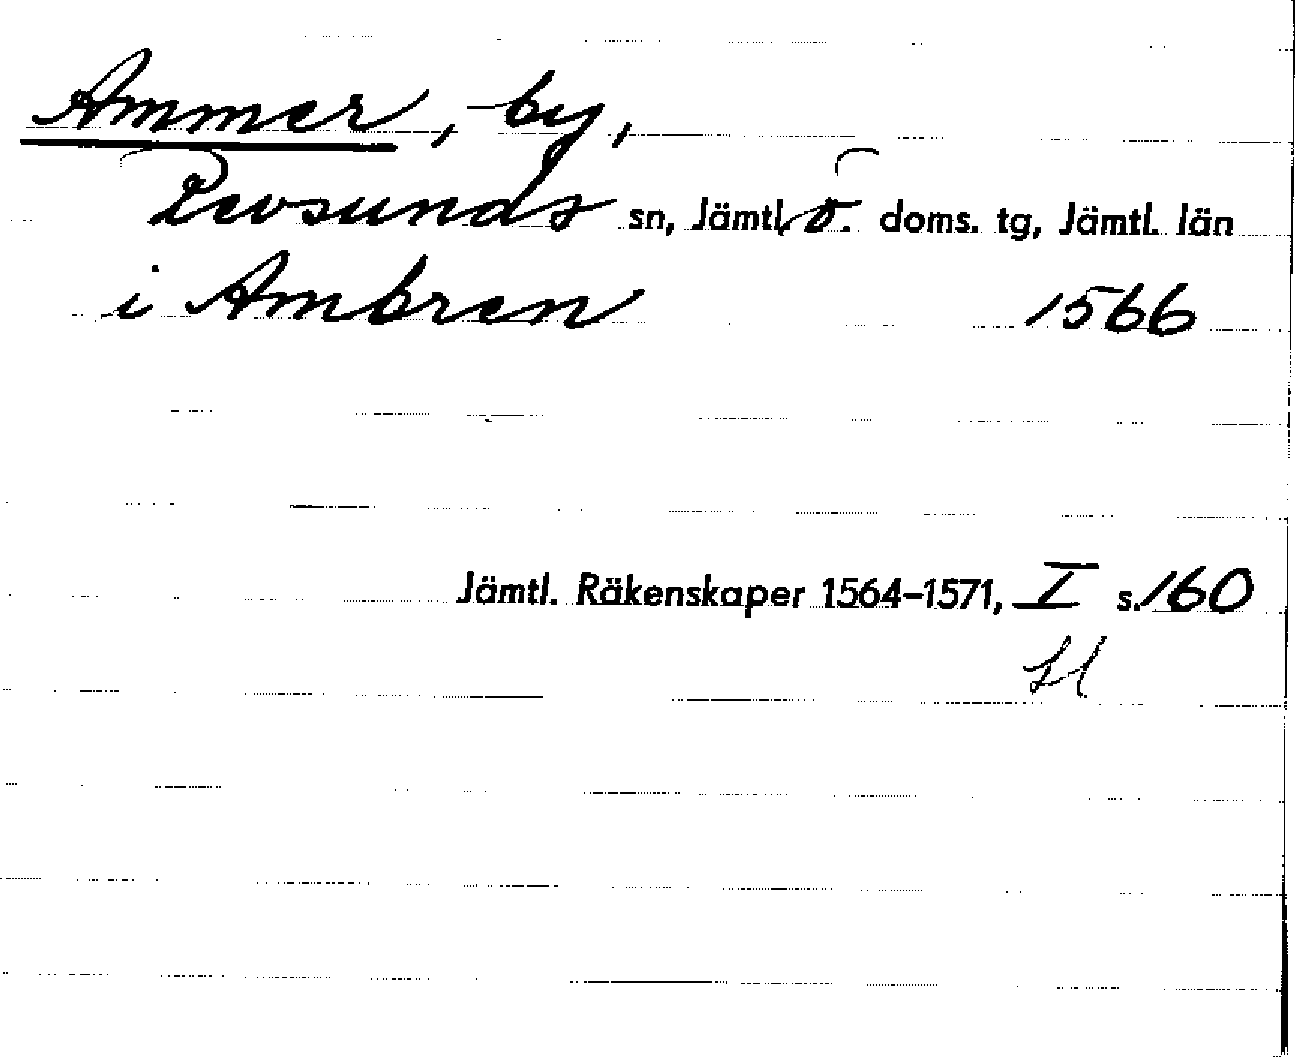 Ammer, by,
Revsunds sn, Jämtl. ö. doms. tg, Jämtl. län
i Ambren 1566
Jämtl. Räkenskaper 1564-1571, I s. 160